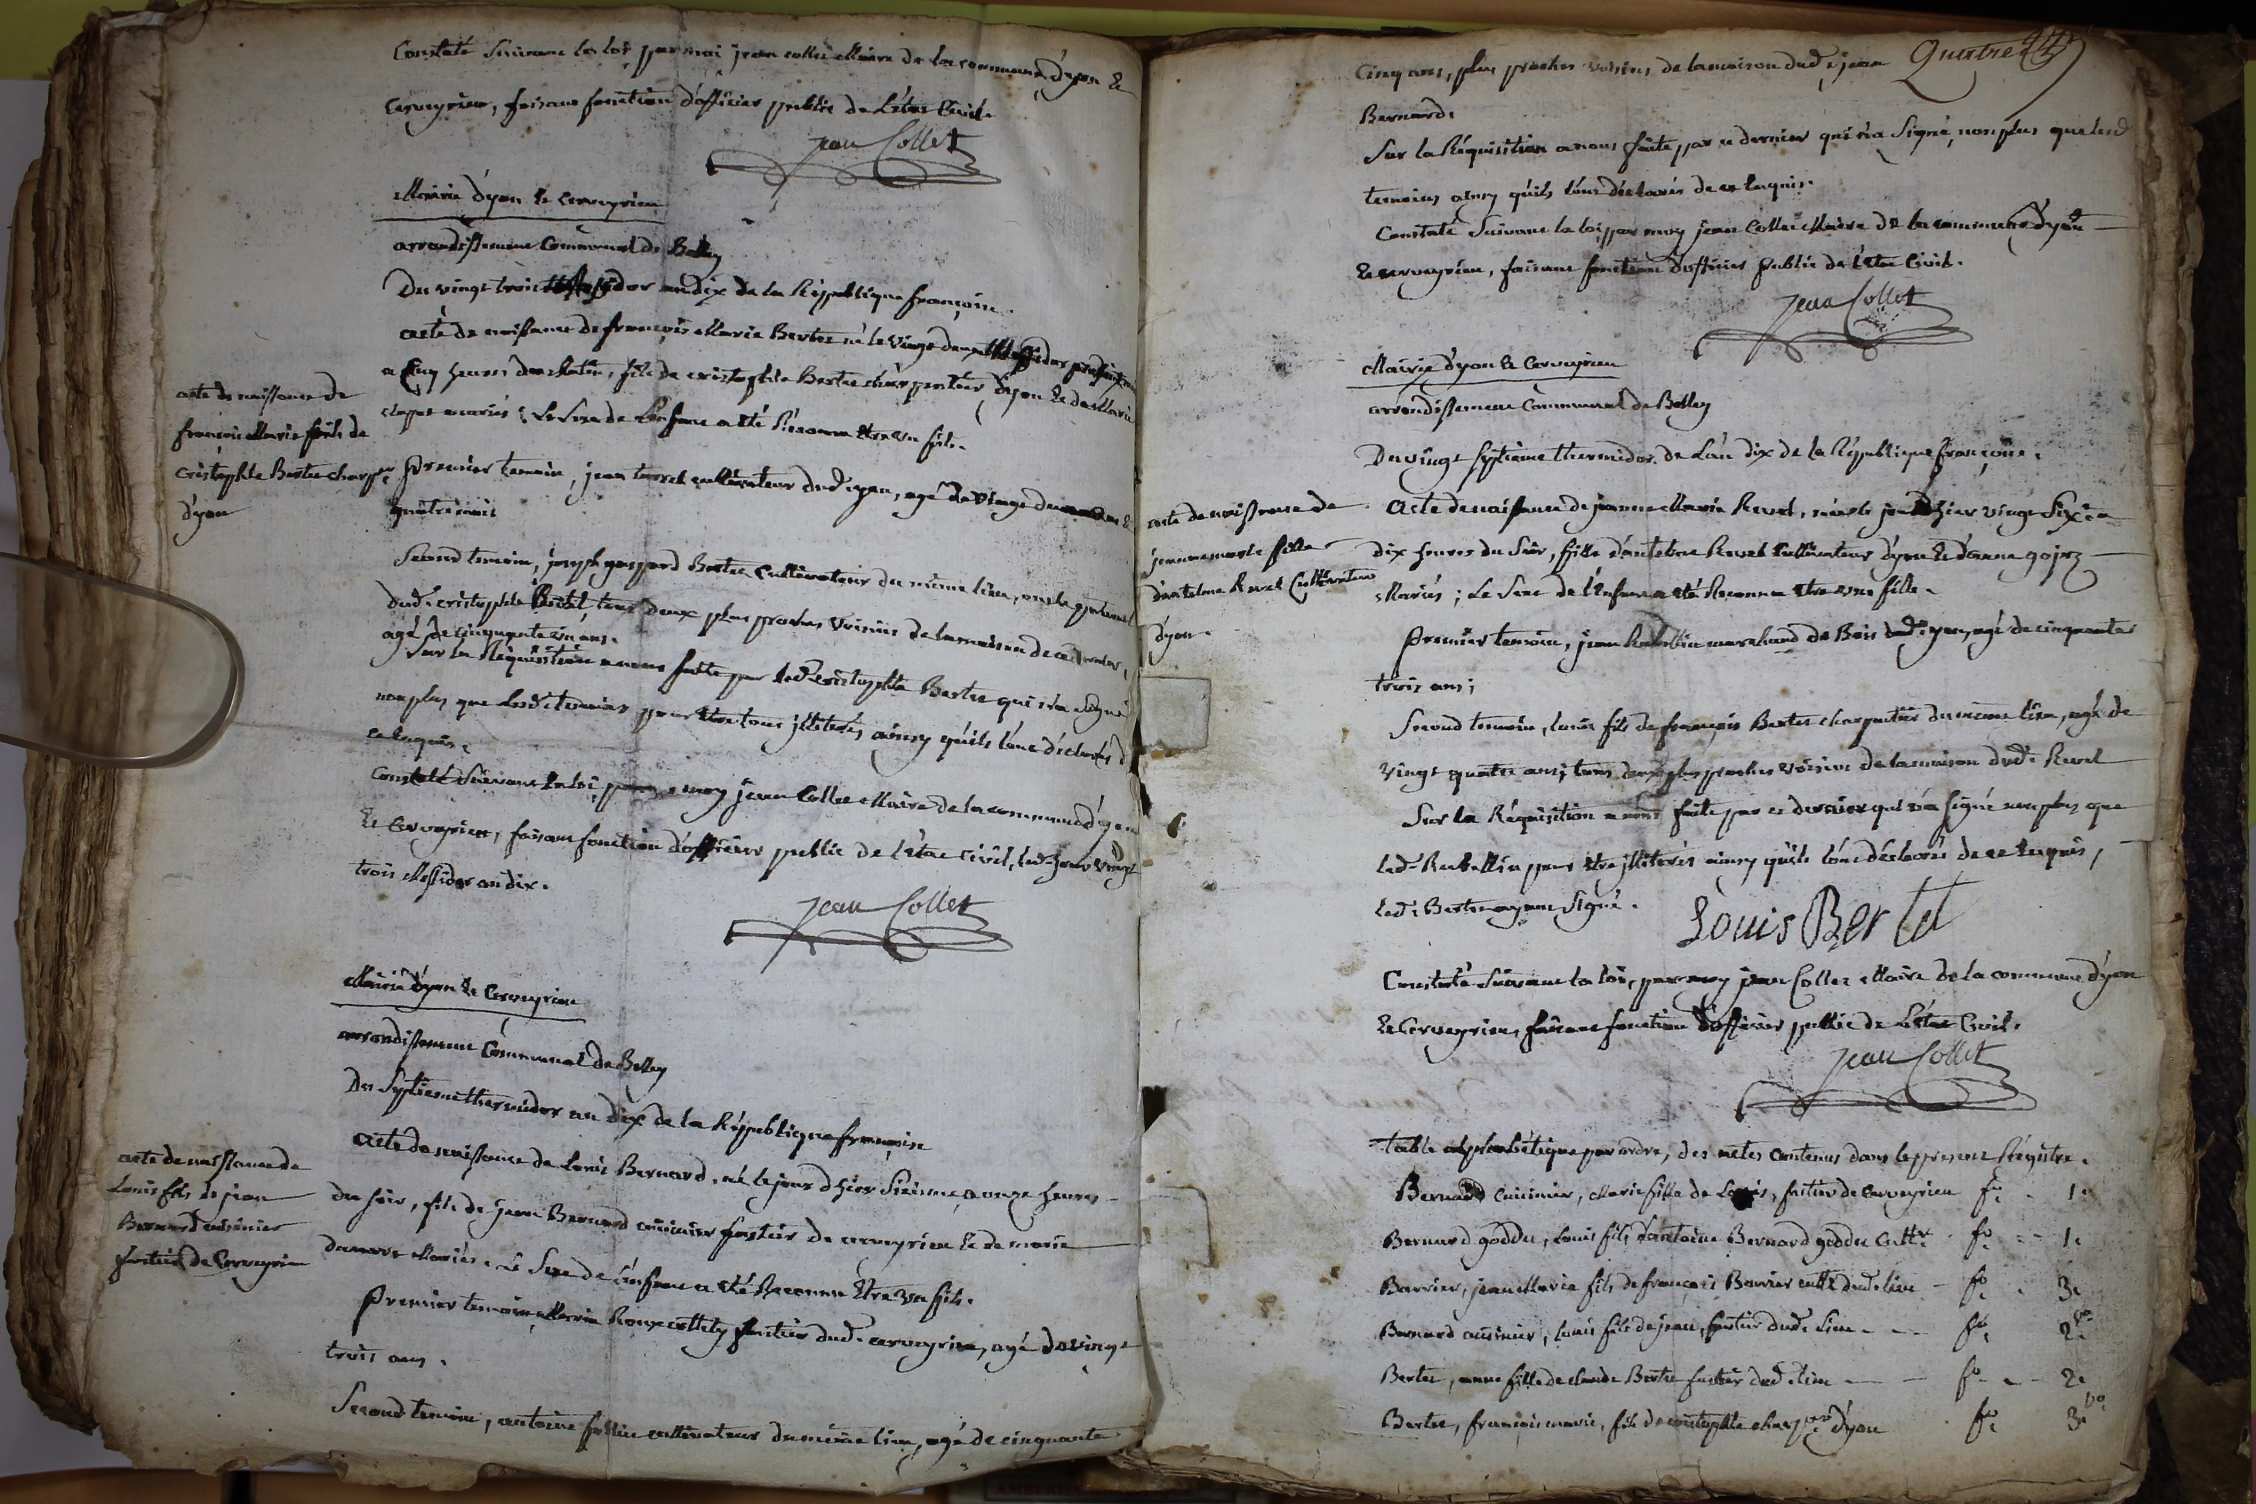 Constaté Suivant la loi par moi jean collet Maire de la commune d'yon &
Cerveyrieu, faisant fonction d'officier public de L'état Civil.
jean Collet
Mairie d'yon & Cerveyrieu
arrondissement Communal de Belley
Du vingt trois Messidor an dix de la République françoise.
acte de naissance de françois Marie Bertet né le vingt deux Messidor
a heures du Matin, fils de cristophle Bertet charpentier d'yon & de Marie
mariés ; Le Sexe de L'enfant a été Reconnu être un fils.
acte de naissance de
françois Marie fils de
cristophle Bertet charpr
d'yon
premier temoin, jean cultivateur dud. yon, agé de vingt deux ans &
quatre mois
Second temoin, joseph gaspard Bertet Cultivateur du même lieu, oncle paternel
dud. cristophle Bertet, tous deux plus proches voisins de la maison de ce dernier,
agé de cinquante un ans.
Sur la Réquisition a nous faite par led. cristophle Bertet qui n'a signé
non plus que lesd. temoins pour être tous illiterés ainsy qu'ils l'ont déclarés d
ce Requis.
Constaté Suivant la loi, par moy jean Collet Maire de la commune d'yon
& Cerveyrieu, faisant fonction d'officier public de l'état civil, led. jour vingt
trois Messidor an dix.
jean Collet
Mairie d'yon & Cerveyrieu
arrondissement Communal de Belley
Du Septième thermidor an dix de la République françoise
acte de naissance de Louis Bernard, né le jour d'hier Sixieme, a onze heures
du soir, fils de jean Bernard cuisinier de cerveyrieu & de marie
mariés. Le Sexe de L'enfant a été Reconnu être un fils.
acte de naissance de
Louis fils de jean
Bernard cuisinier
de Cerveyrieu
Premier temoin, Marin dud. cerveyrieu, agé de vingt
trois ans.
Second temoin, antoine cultivateur du même lieu, agé de cinquante
Quatre
cinq ans, plus proches voisins de la maison dud. jean
Bernard.
Sur la Réquisition a nous faite par ce dernier qui n'a Signé, non plus que lesd
temoins ainsy qu'ils l'ont déclarés de ce Requis.
Constaté Suivant la loi, par moy jean Collet Maire de la commune d'yon
& cerveyrieu, faisant fonction d'officier public de l'état Civil.
jean Collet
Mairie d'yon & Cerveyrieu
arrondissement Communal de Belley
Du vingt Septieme thermidor de L'an dix de la République françoise.
Acte de naissance de jeanne Marie Revel, née le jour d'hier vingt Six à
dix heures du Soir, fille d'antelme Revel Cultivateur d'yon & d'anne gojoz
Mariés ; Le Sexe de L'Enfant a été Reconnu être une fille.
acte de naissance de
jeanne marie fille
d'antelme Revel Cultivateur
d'yon.
Premier temoin, jean Rubellin marchand de Bois dud. yon, agé de cinquante
trois ans ;
Second temoin, Louis fils de françois Bertet charpentier du même lieu, agé de
vingt quatre ans ; tous deux plus proches voisins de la maison dud. Revel
Sur la Réquisition a nous faite par ce dernier qui n'a signé non plus que
led. Rubellin pour être illiterés ainsy qu'ils l'ont déclarés de ce Requis,
led. Bertet ayant Signé.
Louis Bertet
Constaté Suivant la loi, par moy jean Collet Maire de la commune d'yon
& Cerveyrieu, faisant fonction d'officier public de L'état Civil.
jean Collet
table alphabétique par ordre, des actes contenus dans le present Régistre.
Bernard cuisinier, Marie fille de Louis, de Cerveyrieu fo. 1.
Bernard goddu, Louis fils d'antoine Bernard goddu Cultr. fo. 1.
Barrier, jean Marie fils de françois Barrier cultr dud. lieu fo. 3.
Bernard cuisinier, louis fils de jean, dud. lieu fo. 2. vo
Bertet, anne fille de claude Bertet dud. lieu fo. 2.
Bertet, françois marie, fils de cristophle charper. d'yon fo. 3. vo